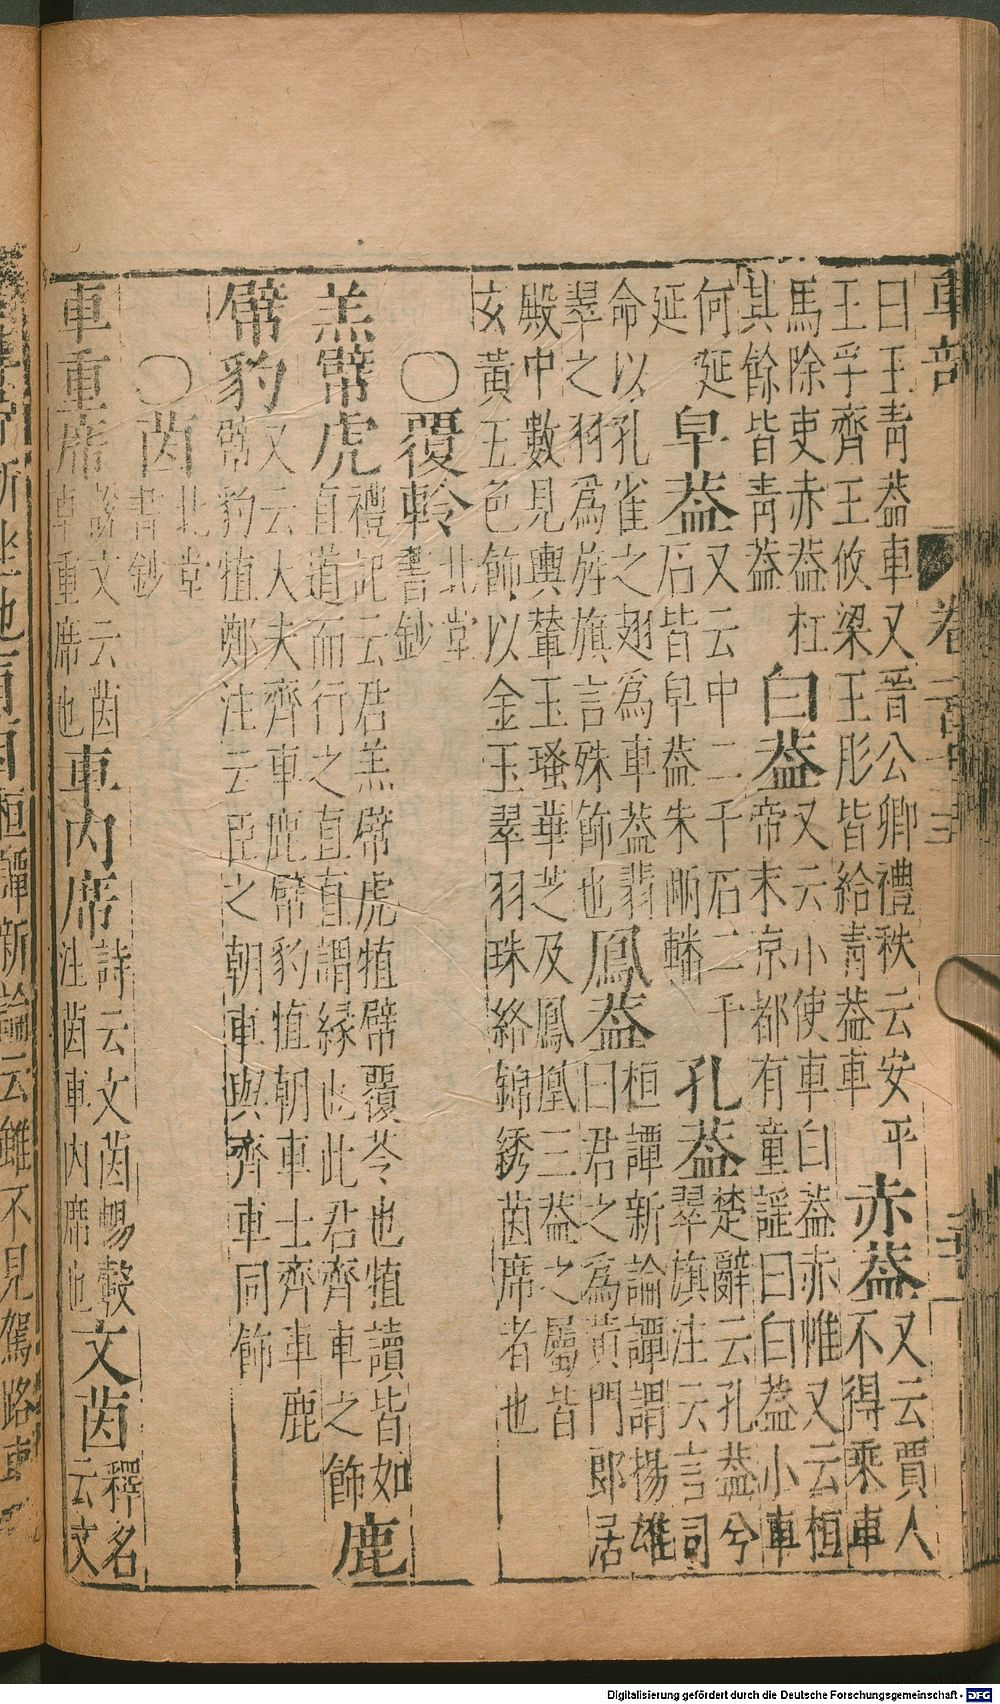 車部
曰王青蓋車又晉公卿禮秩云安平
王孚齊王攸梁王肜皆給青蓋車
赤蓋
又云賈人
不得乘車
馬除吏赤蓋杠
其餘皆青蓋
白蓋
又云小使車白蓋赤帷又云桓
帝末京都有童謡曰白蓋小車
何延
延
皁蓋
又云中二千石二千
石皆皁蓋朱兩轓
孔蓋
楚辭云孔蓋兮
翠旗注云言司
命以孔雀之翅爲車蓋翡
翠之羽爲旂旗言殊飾也
鳳蓋
桓譚新論譚謂揚雄
曰君之爲黄門郎居
殿中數見輿輦玉瑵華芝及鳳凰三蓋之屬皆
玄黄五色飾以金玉翠羽珠絡錦綉茵席者也
○覆軨
北堂
書鈔
羔幦虎
禮記云君羔幦虎犆幦覆苓也犆讀皆如
直道而行之直直謂縁也此君齊車之飾
鹿
幦豹
又云大夫齊車鹿幦豹犆朝車士齊車鹿
幦豹犆鄭注云臣之朝車與齊車同飾
○茵
北堂
書鈔
車重席
説文云茵
車重席也
車内席
詩云文茵暢轂
注茵車内席也
文茵
釋名
云文
Digitalisierung gefördert durch die Deutsche Forschungsgemeinschaft - DFG